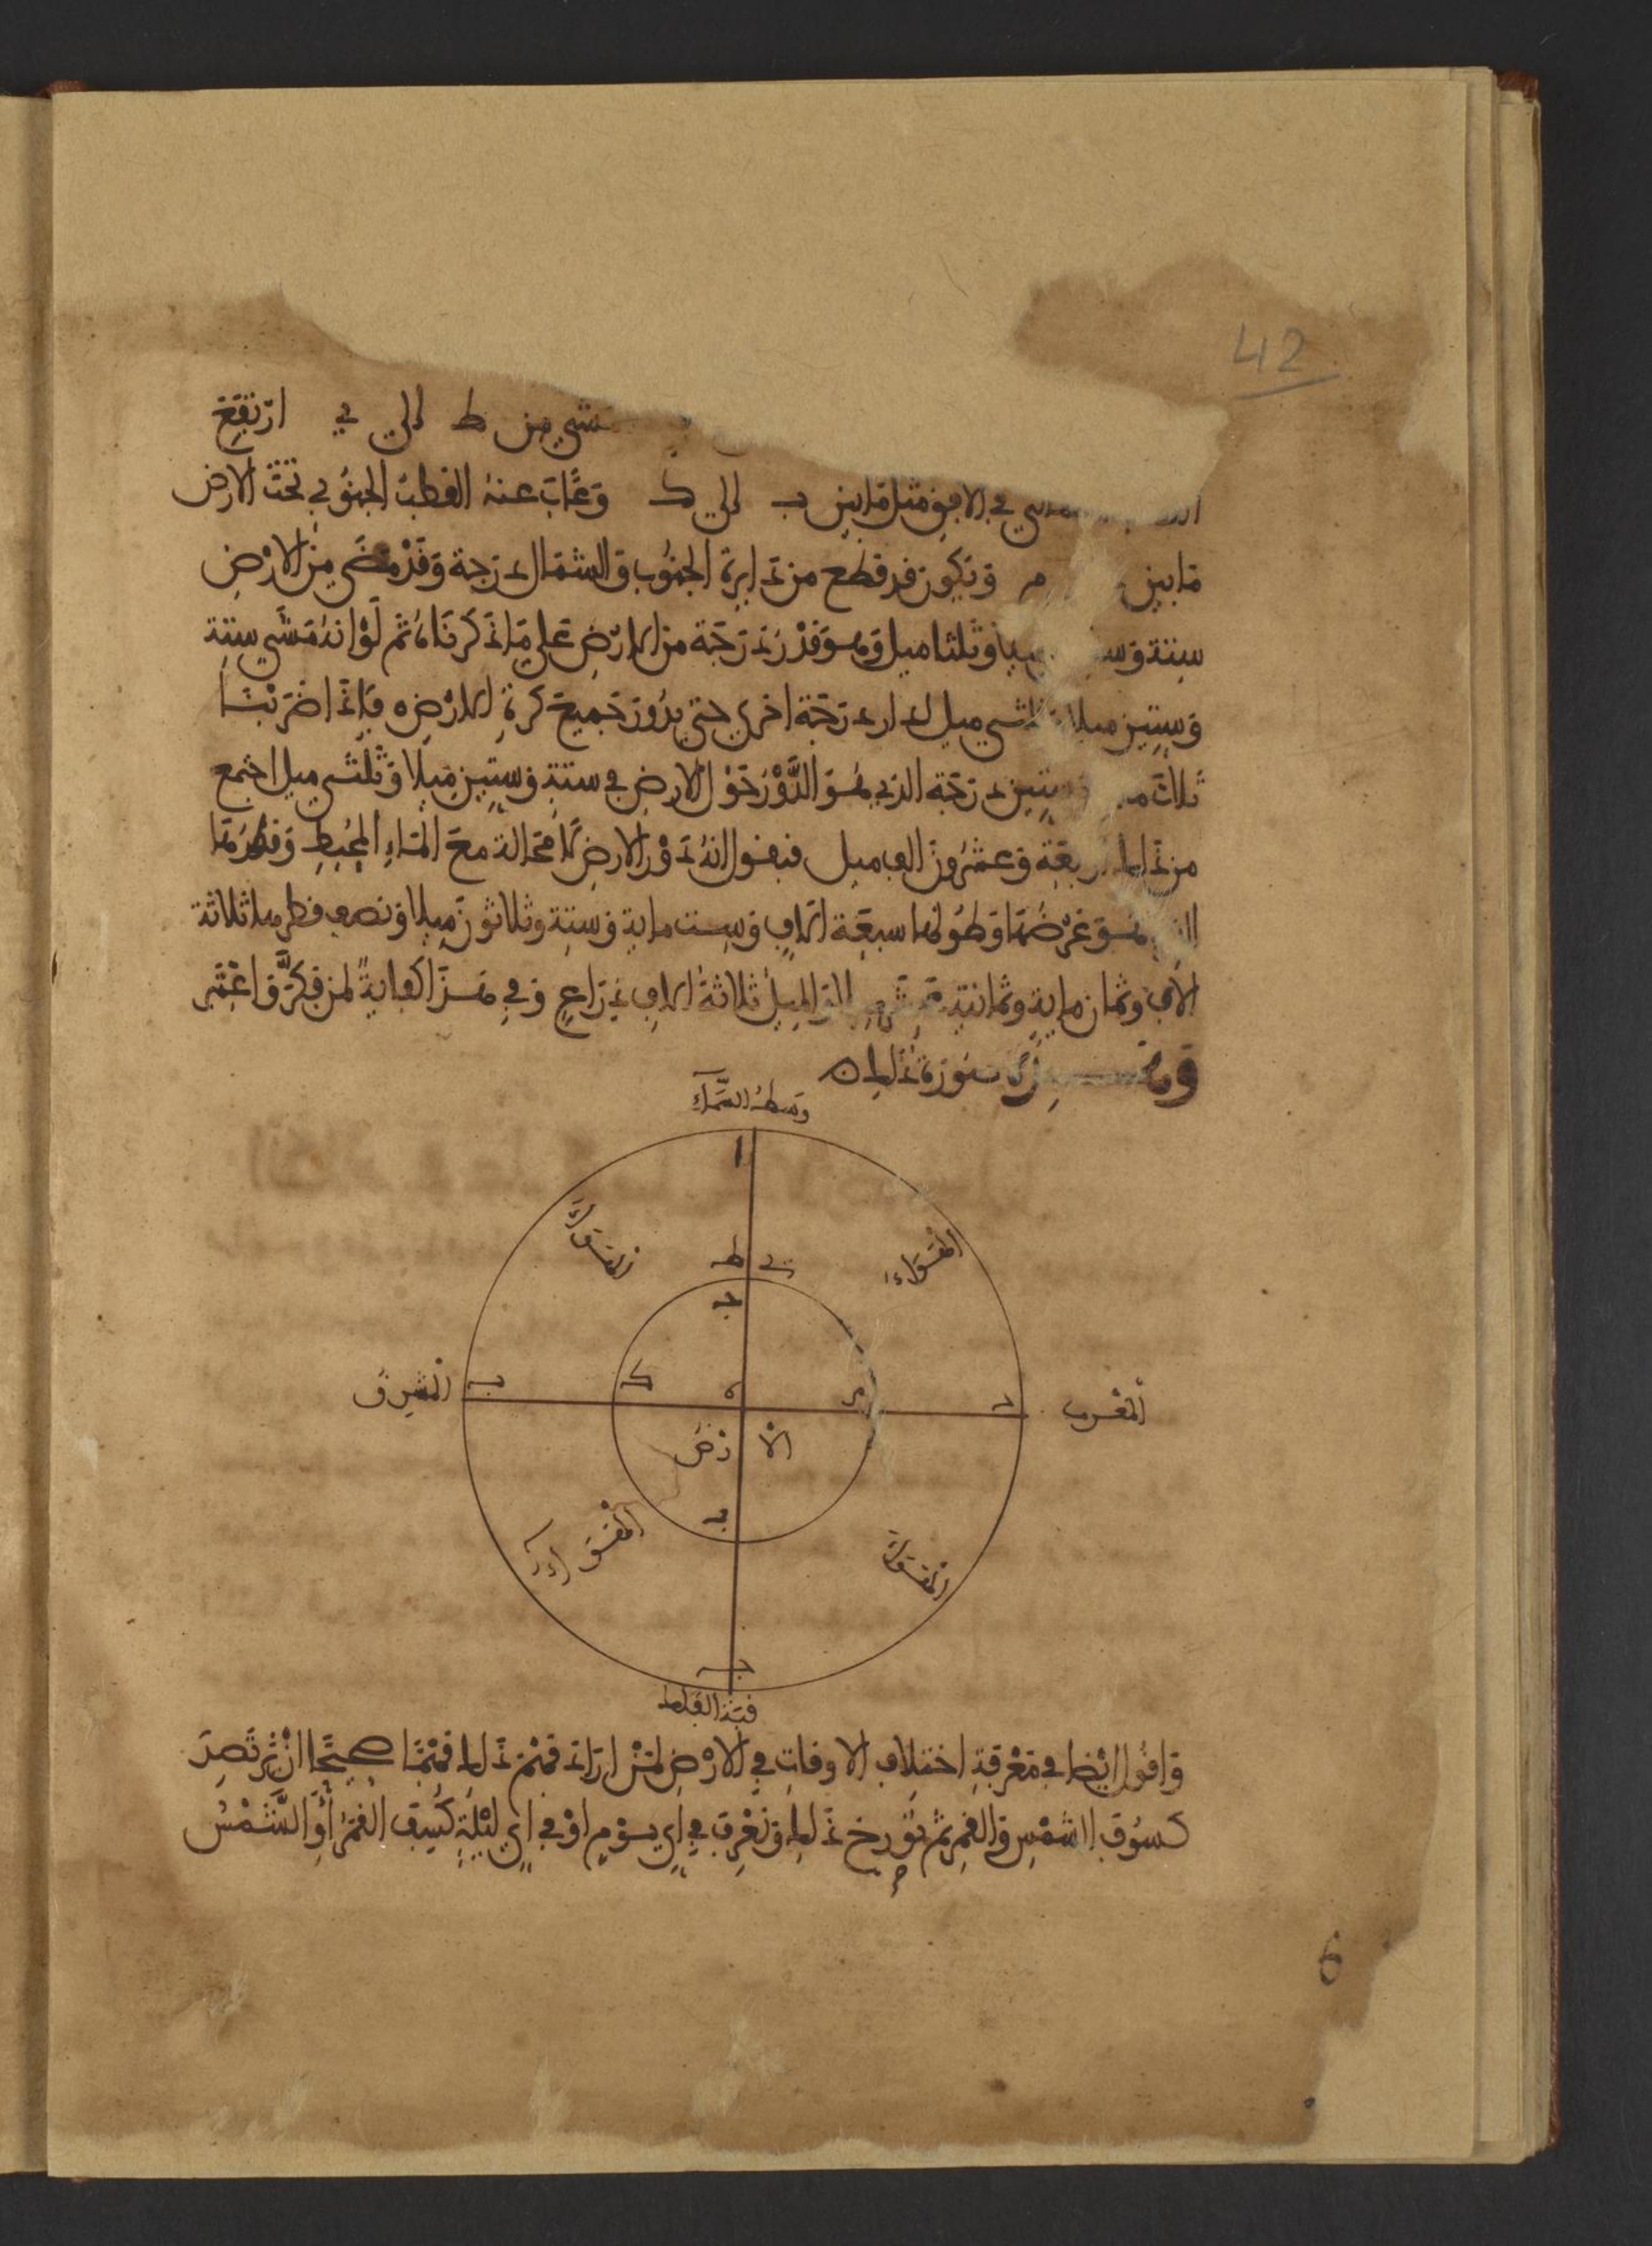 42
من ط الي ي ارتفع
في الافق مثل مابين ب الي ك وغاب عنه القطب الجنوبي تحت الارض
مابين م ويكون قد قطع من دايرة الجنوب والشمال درجة وقد مضي من الارض
ستة وثلثا ميل وهو قدر درجة من الارض علي ما ذكرناه ثم لو انه مشي ستة
وستين ميلا ميل لدار درجة اخري حتي يدور جميع كرة الارض ه فاذا ضربنا
ثلاث وستين درجة الذي هو الدور حول الارض في ستة وستين ميلا وثلثي ميل اجتمع
من ذلك اربعة وعشرون الف ميل فيقول انه دور الارض لا محالة مع الماء المحيط وقطرها
الذي هو عرضها وطولها سبعة الاف وست ماية وستة وثلاثون ميلا ونصف قطرها ثلاثة
الاف وثمان ماية وثمانية عشر الميل ثلاثة الاف ذراع وفي هذا كفاية لمن فكر واعتبر
صورة ذلك ه
وسط السماء
ا
الهواء
الهواء
ط ي
ج
المشرق
ب
ك
ه
م
د
المغرب
الارض
ب
الهواء
الهواء
ج
قبة الفلك
واقول ايضا في معرفة اختلاف الاوقات في الارض لمن اراد فهم ذلك فهما صحيحا ان يرتصد
كسوف الشمس والقمر ثم يورخ ذلك ونعرف في اي يوم او في اي ليلة كسف القمر او الشمس
6